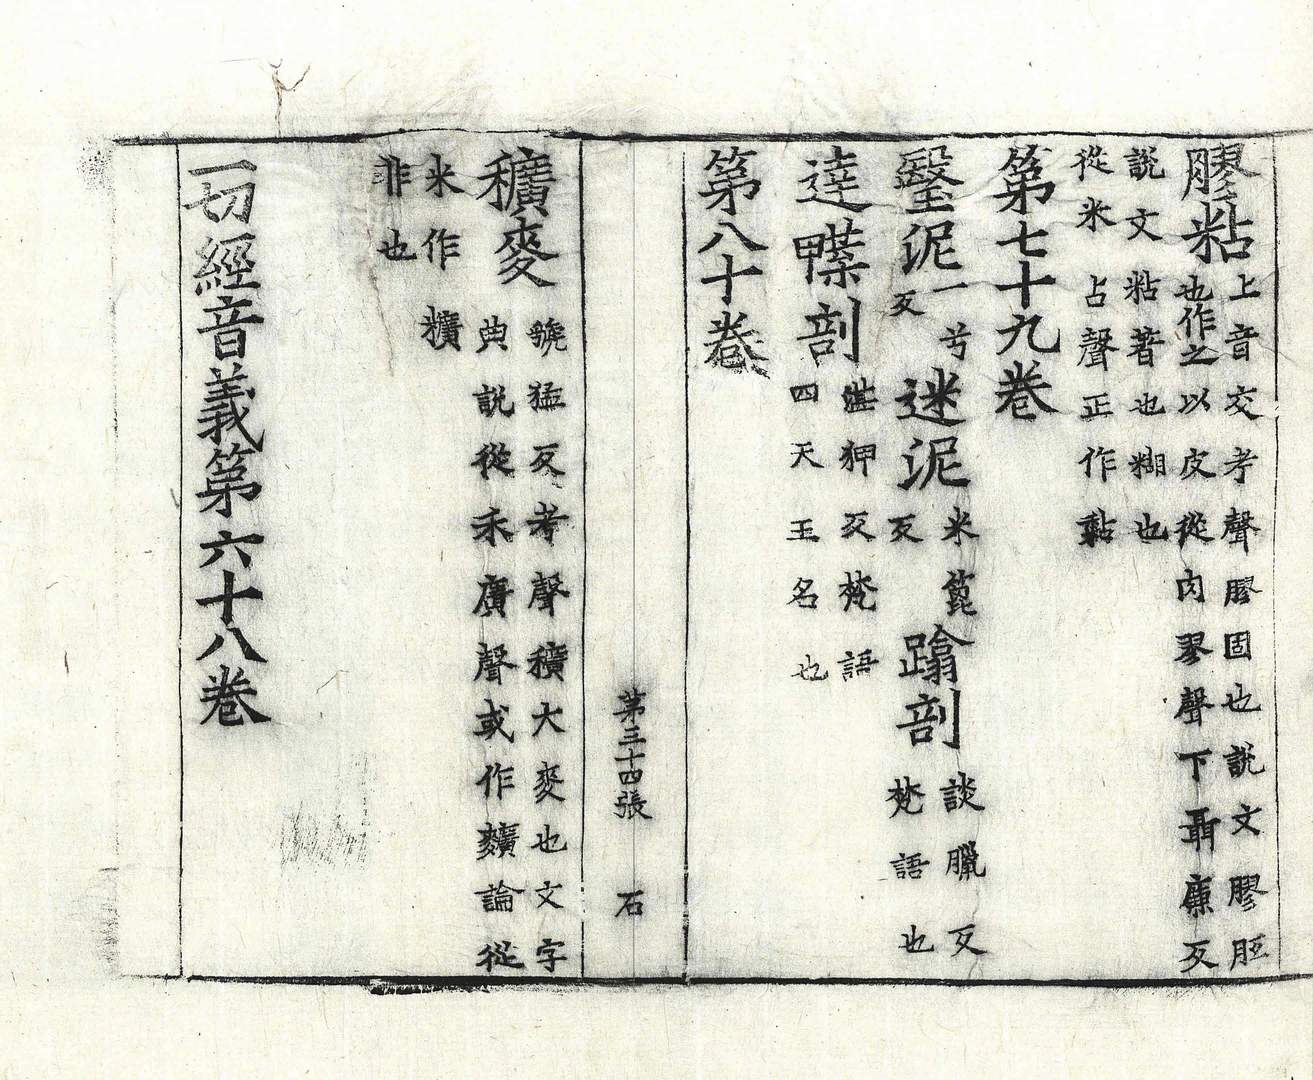 膠粘上音交考聲膠固也說文膠䏣
也作之以皮從肉翏聲下聶廉反
說文粘著也糊也
從米占聲正作黏
第七十九卷
瑿泥一兮反迷泥米篦反蹹剖談臘反梵語也
達㗼剖湛狎反梵語四天王名也
第八十卷
第三十四張 石
穬麥虢猛反考聲穬大麥也文字
典說從禾廣聲或作䵃論從
米作䊯
非也
一切經音義第六十八卷